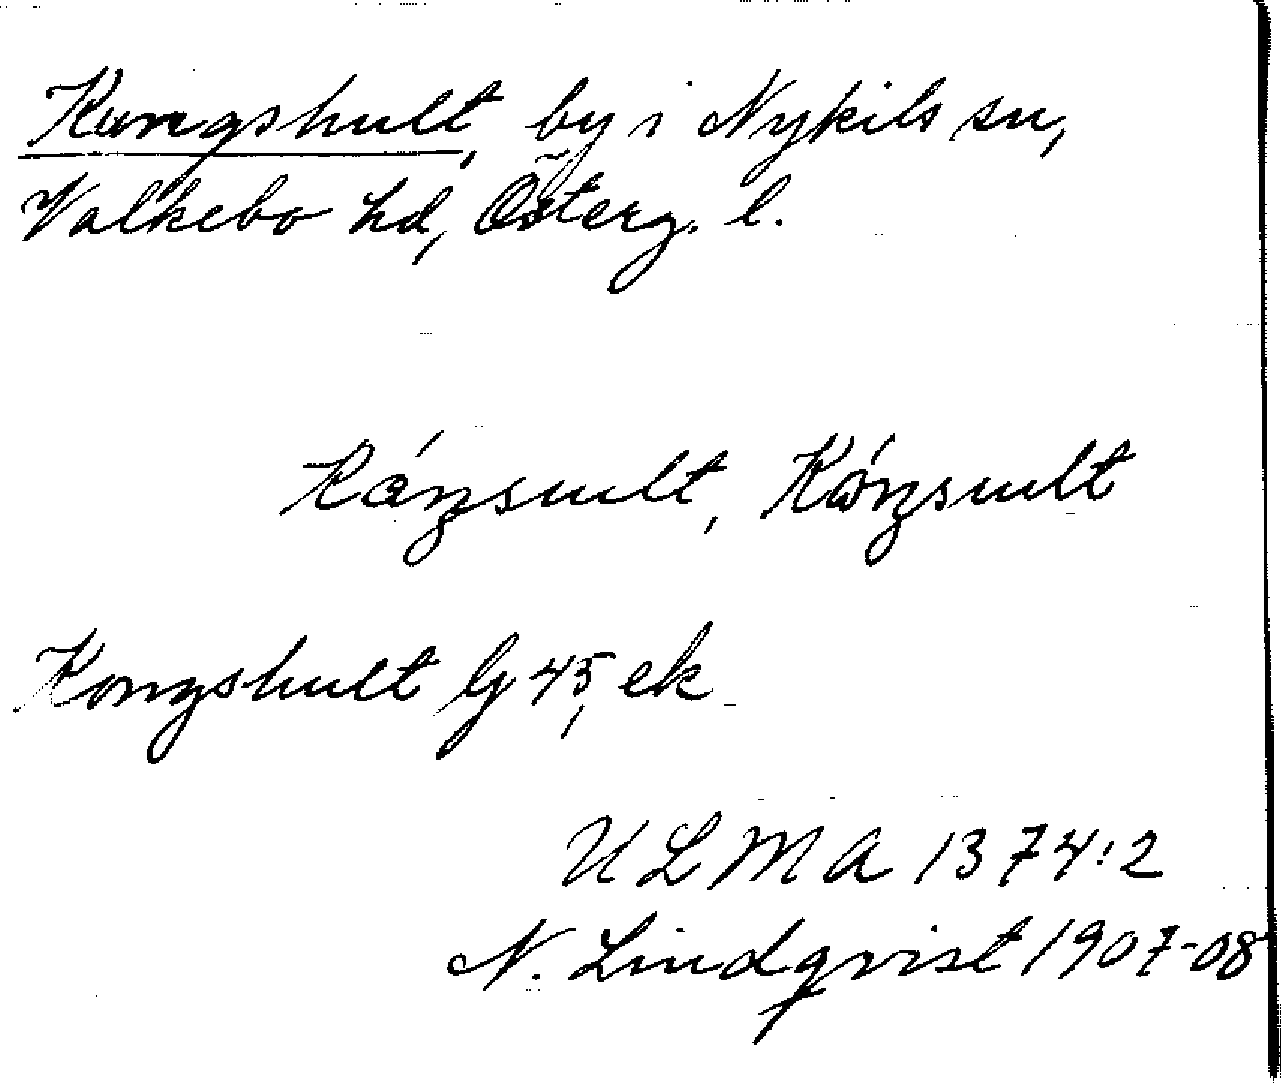 Kungshult, by i Nykils sn,
Valkebo hd, Österg. l.
Kángsult, Kóngsult
Kongshult G 45, ek
ULMA 1374:2
N. Lindqvist 1907-08